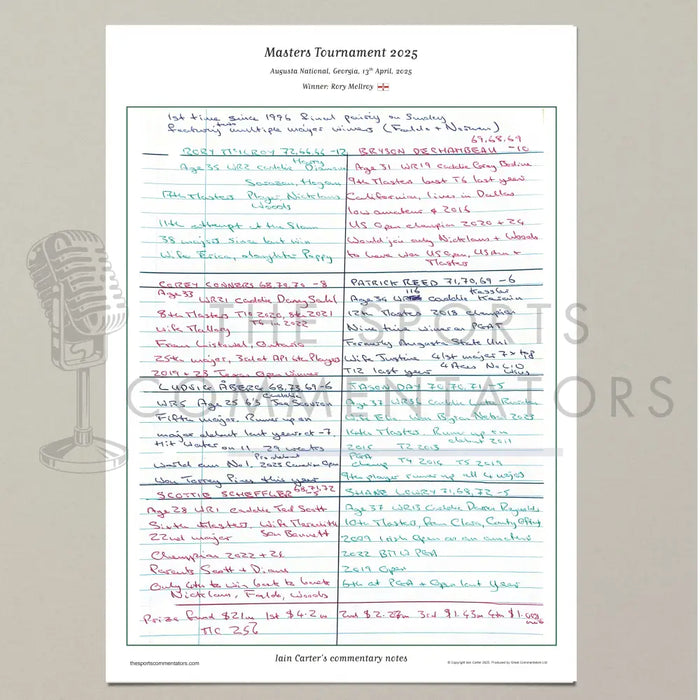 Masters Tournament 2025
Augusta National, Georgia, 13th April, 2025
Winner: Rory McIlroy
1st time since 1996 final pairing on Sunday
featuring two multiple major winners (Faldo + Norman)
RORY McILROY 72,66,66 -12
Age 35 WR2 caddie Harry Diamond
Sarazen, Hogan
17th Masters Player, Nicklaus
Woods
11th attempt at the Slam
38 majors since last win
Wife Erica, daughter Poppy
69,68,69
BRYSON DECHAMBEAU -10
Age 31 WR19 caddie Greg Bodine
9th Masters best T6 last year
Californian, lives in Dallas
low amateur 2016
US Open champion 2020 + 24
Would join only Nicklaus + Woods
to have won US Open, US Am +
Masters
COREY CONNERS 68,70,70 -8
Age 33
WR21 caddie Danny Sahl
8th Masters T10 2020, 8th 2021
T6 in 2022
Wife Mallory
From Listowel, Ontario
25th major, 3rd at API 6th Players
2019 + 23 Texas Open winner
PATRICK REED 71,70,69 -6
116 Kessler
Age 34 WR caddie Karain
12th Masters 2018 champion
Nine time winner on PGAT
Formerly Augusta State Uni
Wife Justine 41st major
T12 last year 4 Aces
LUDVIG ÅBERG 68,73,69 -6
caddie
WR5 Age 25 Joe Skovron
Fifth major. Runner up on
major debut last year at -7.
Hit water on 11.
Pro debut
World am No 1, 2023 Canadian Open
Won Torrey Pines this year
JASON DAY 70,70,71 -5
Age 37 WR36 caddie Luke Reardon
Wife Ellie. Won Byron Nelson 2023
14th Masters. Runner up on
debut 2011
2015 T2 2013
PGA
champ T4 2016 T5 2019
9th player runner up all 4 majors
SCOTTIE SCHEFFLER 68,71,72
-5
Age 28 WR1 caddie Ted Scott
Sixth Masters, Wife Meredith
22nd major Son Bennett
Champion 2022 + 24
Parents Scott + Diane
Only 4th to win back to back
Nicklaus, Faldo, Woods
SHANE LOWRY 71,68,72 -5
Age 37 WR13 Caddie Darren Reynolds
10th Masters, From Clara, County Offaly
2009 Irish Open as an amateur
2022 BMW PGA
2019 Open
6th at PGA + Open last year
Prize fund $21m 1st $4.2m 2nd $2.27m 3rd $1.43m 4th
TIC 256
THE SPORTS
COMMENTATORS
thesportscommentators.com
Iain Carter's commentary notes